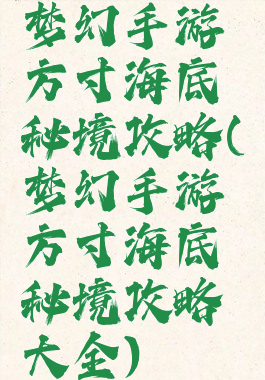 梦幻手游
方寸海底
秘境攻略(
梦幻手游
方寸海底
秘境攻略
大全)